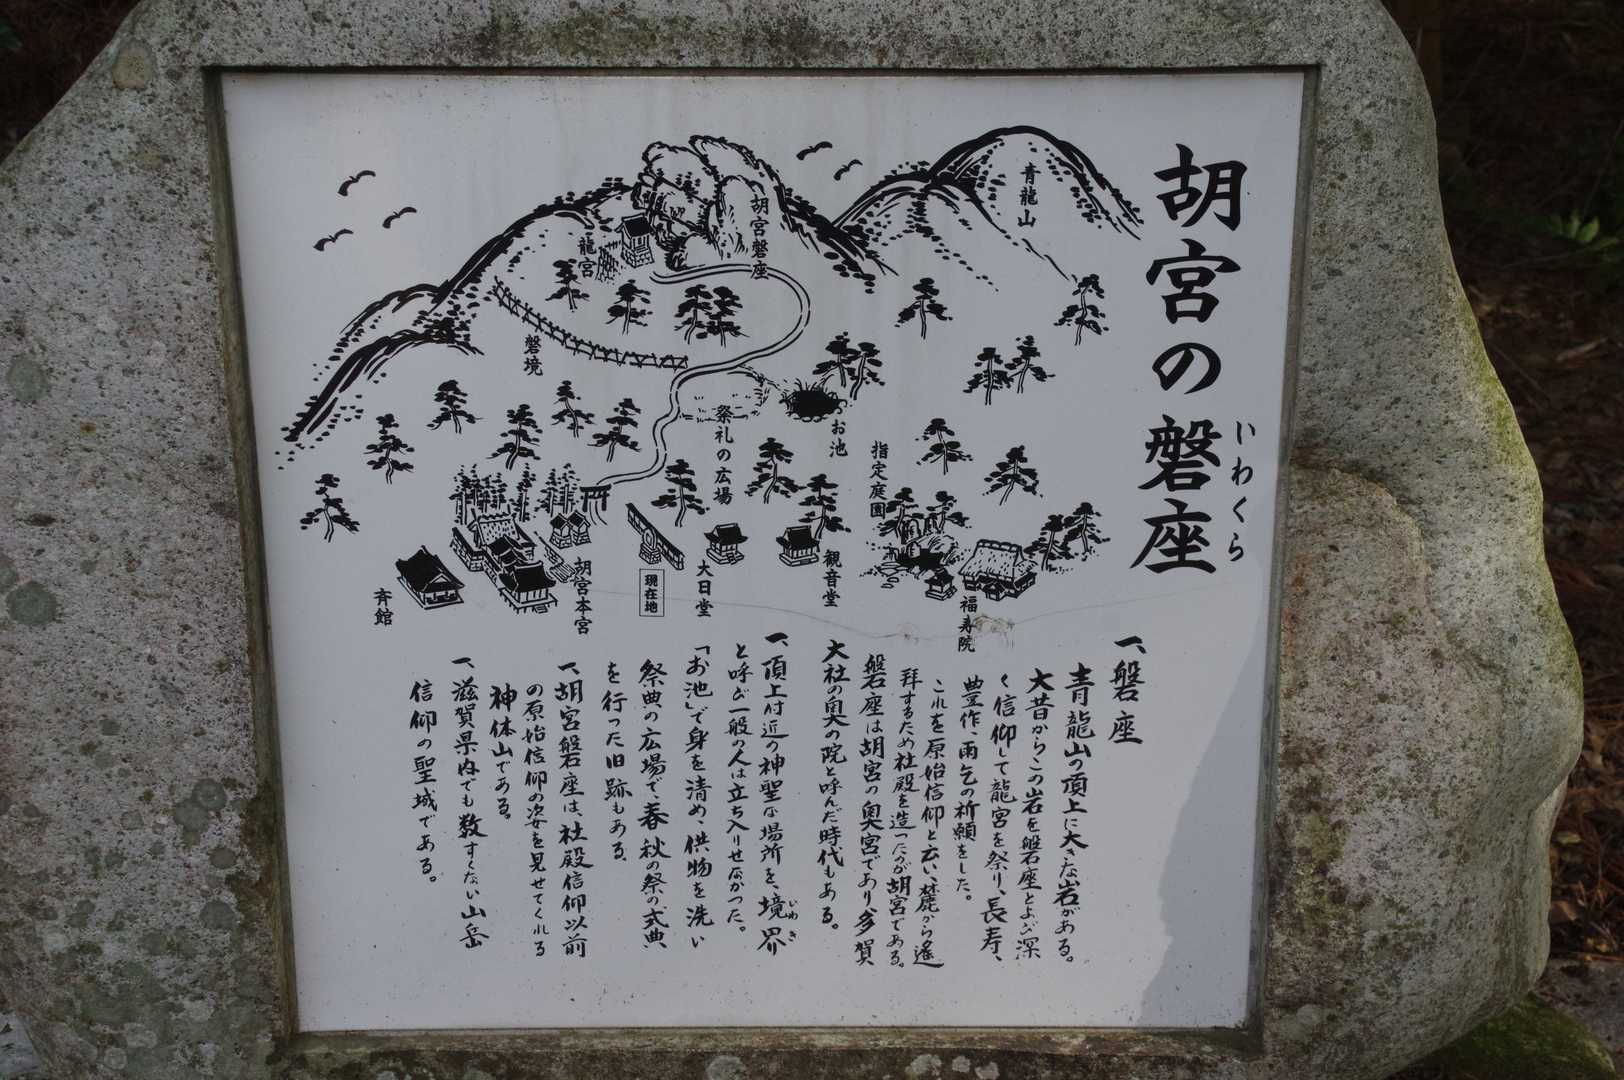 胡宮の磐座
いわくら
青龍山
胡宮磐座
龍宮
磐境
祭礼の広場
お池
指定庭園
福寿院
観音堂
大日堂
現在地
胡宮本宮
斉館
一、磐座
青龍山の頂上に大きな岩がある。
大昔からこの岩を磐座とよび深
く信仰して龍宮を祭り、長寿、
豊作、雨乞の祈願をした。
これを原始信仰と云い、麓から遙
拝するため社殿を造ったのが胡宮である。
磐座は胡宮の奥宮であり、多賀
大社の奥の院と呼んだ時代もある。
一、頂上付近の神聖な場所を、境界
いわさき
と呼び一般の人は立ち入りせなかった。
「お池」で身を清め、供物を洗い
祭典の広場で、春秋の祭の式典
を行った旧跡もある。
一、胡宮磐座は、社殿信仰以前
の原始信仰の姿を見せてくれる
神体山である。
一、滋賀県内でも数すくない山岳
信仰の聖域である。